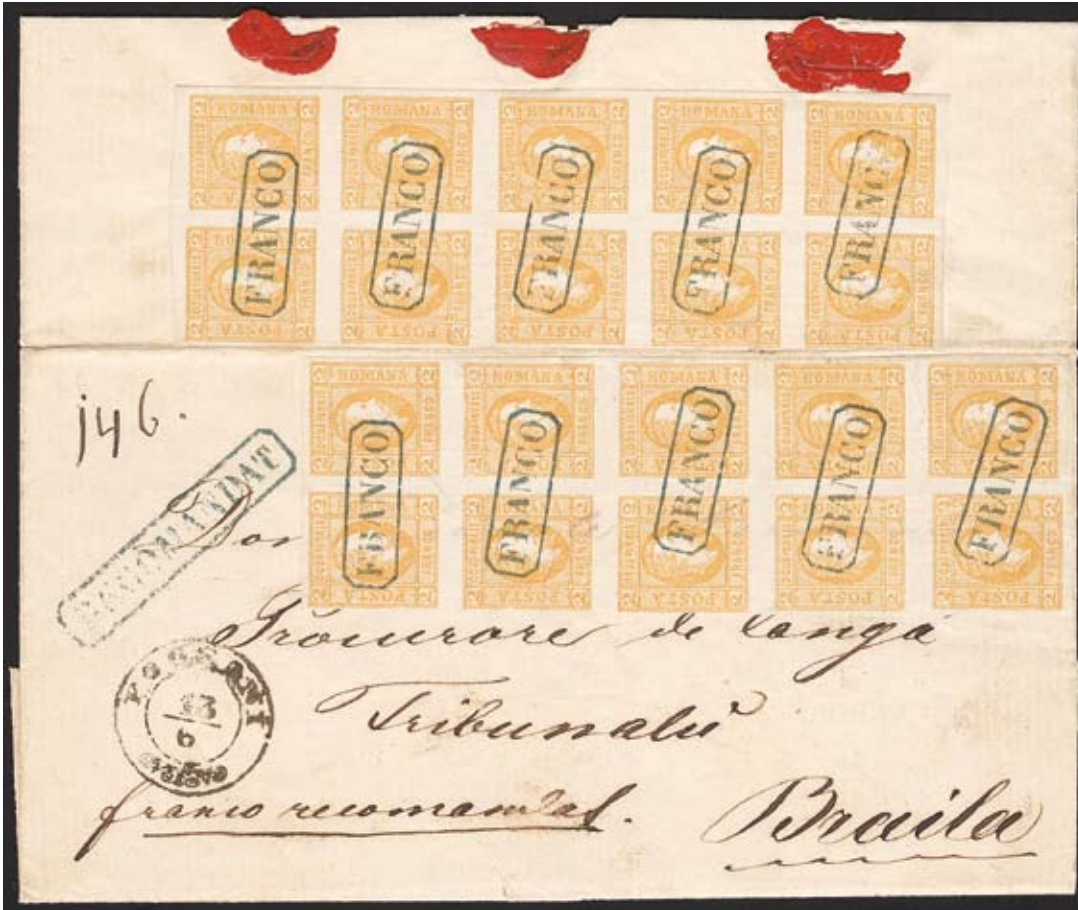 ROMANA ROMANA ROMANA ROMANA ROMANA
FRANCO FRANCO FRANCO FRANCO FRANCO
POSTA POSTA POSTA POSTA POSTA
ROMANA ROMANA ROMANA ROMANA ROMANA
FRANCO FRANCO FRANCO FRANCO FRANCO
POSTA POSTA POSTA POSTA POSTA
146.
RECOMANDAT
Procurore de langa
Tribunalŭ
FOKSANI
23
6
franco recomandat.
Braila